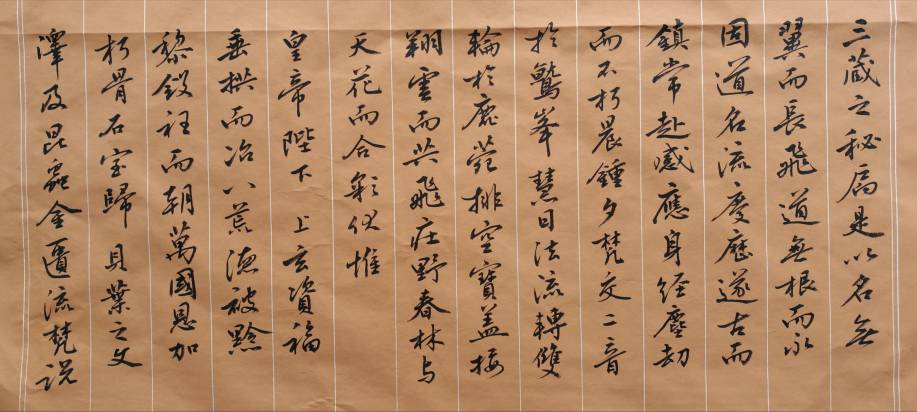 三藏之秘扃是以名無
翼而長飛道無根而永
固道名流慶歷遂古而
鎮常赴感應身經塵劫
而不朽晨鍾夕梵交二音
於鷲峯慧日法流轉雙
輪於鹿菀排空寶蓋接
翔雲而共飛莊野春林与
天花而合彩伏惟
皇帝陛下 上玄資福
垂拱而治八荒德被黔
黎斂衽而朝萬國恩加
朽骨石室歸貝葉之文
澤及昆蟲金匱流梵说